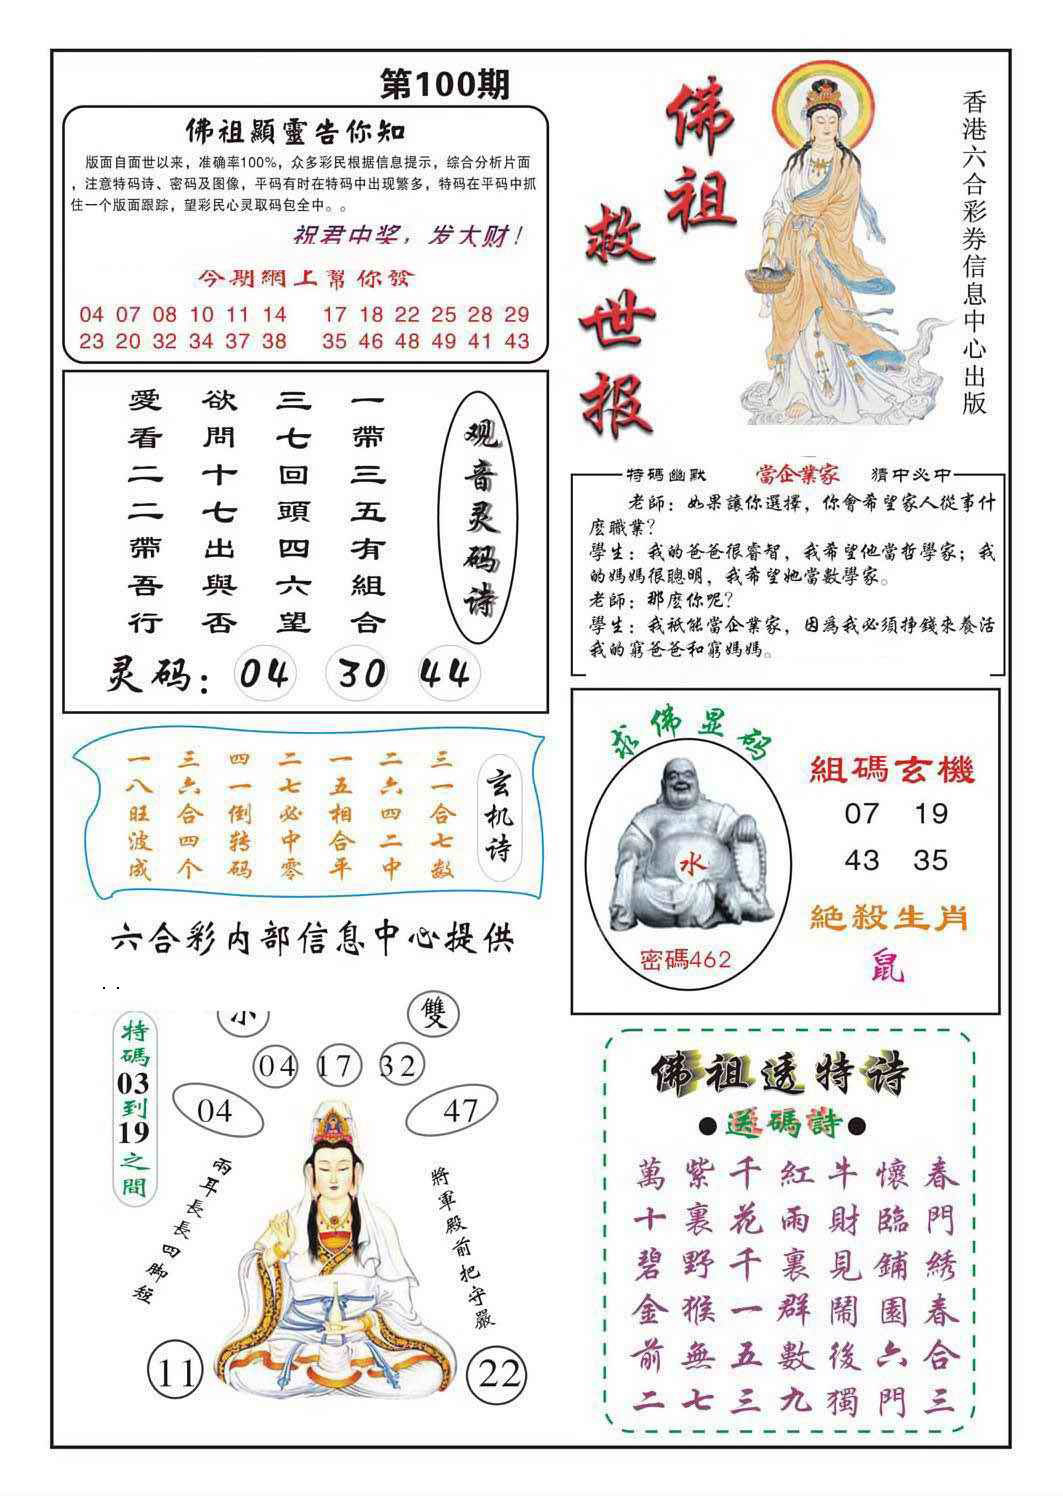 第100期
佛祖顯靈告你知
版面自面世以来，准确率100%，众多彩民根据信息提示，综合分析片面
，注意特码诗、密码及图像，平码有时在特码中出现繁多，特码在平码中抓
住一个版面跟踪，望彩民心灵取码包全中。。
祝君中奖，发大财！
今期網上幫你發
04 07 08 10 11 14 17 18 22 25 28 29
23 20 32 34 37 38 35 46 48 49 41 43
佛祖
救世报
香港六合彩券信息中心出版
观音灵码诗
一帶三五有組合
三七回頭四六望
欲問十七出與否
愛看二二帶吾行
灵码：04 30 44
特碼幽默 當企業家 猜中必中
老師：如果讓你選擇，你會希望家人從事什
麽職業？
學生：我的爸爸很睿智，我希望他當哲學家；我
的媽媽很聰明，我希望她當數學家。
老師：那麽你呢？
學生：我衹能當企業家，因爲我必須掙錢來養活
我的窮爸爸和窮媽媽。
玄机诗
三一合七数
二六四二中
一五相合平
二七必中零
四一倒转码
三六合四个
一八旺波成
六合彩内部信息中心提供
求佛显码
水
密碼462
組碼玄機
07 19
43 35
絕殺生肖
鼠
雙
04 17 32
04 47
特碼03到19之間
兩耳長長四脚短
將軍殿前把守嚴
11 22
佛祖透特诗
●送碼詩●
萬紫千紅牛懷春
十裏花雨財臨門
碧野千裏見鋪綉
金猴一群鬧園春
前無五數後六合
二七三九獨門三